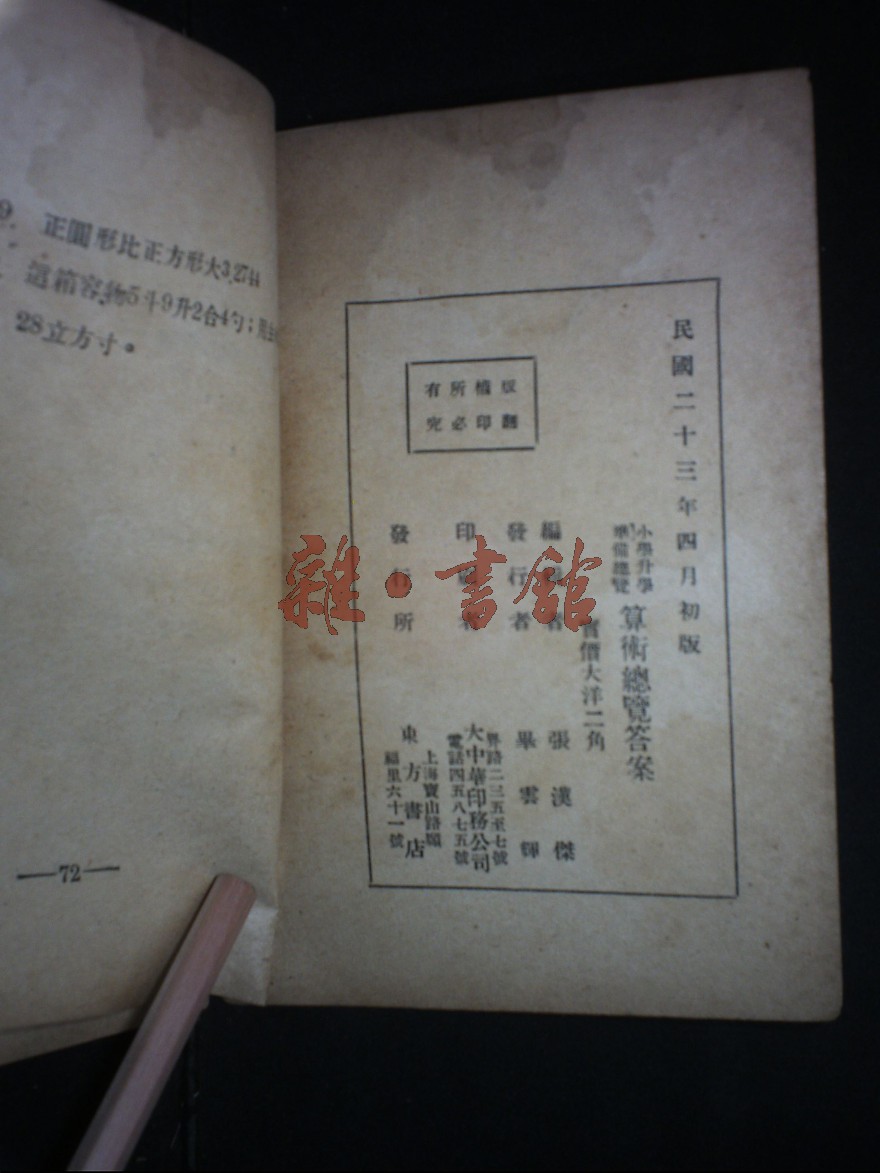 9. 正圓形比正方形大3.2744
這箱容物5斗9升2合4勺；
28立方寸。
—72—
民國二十三年四月初版
小學升學
準備總覽
算術總覽答案
實價大洋二角
編 者 張漢傑
發行者 畢雲輝
印 者
界路二三五至七號
大中華印務公司
電話四五八七五號
發行所
上海寶山路
東方書店
福里六十一號
版權所有
翻印必究
雜·書館